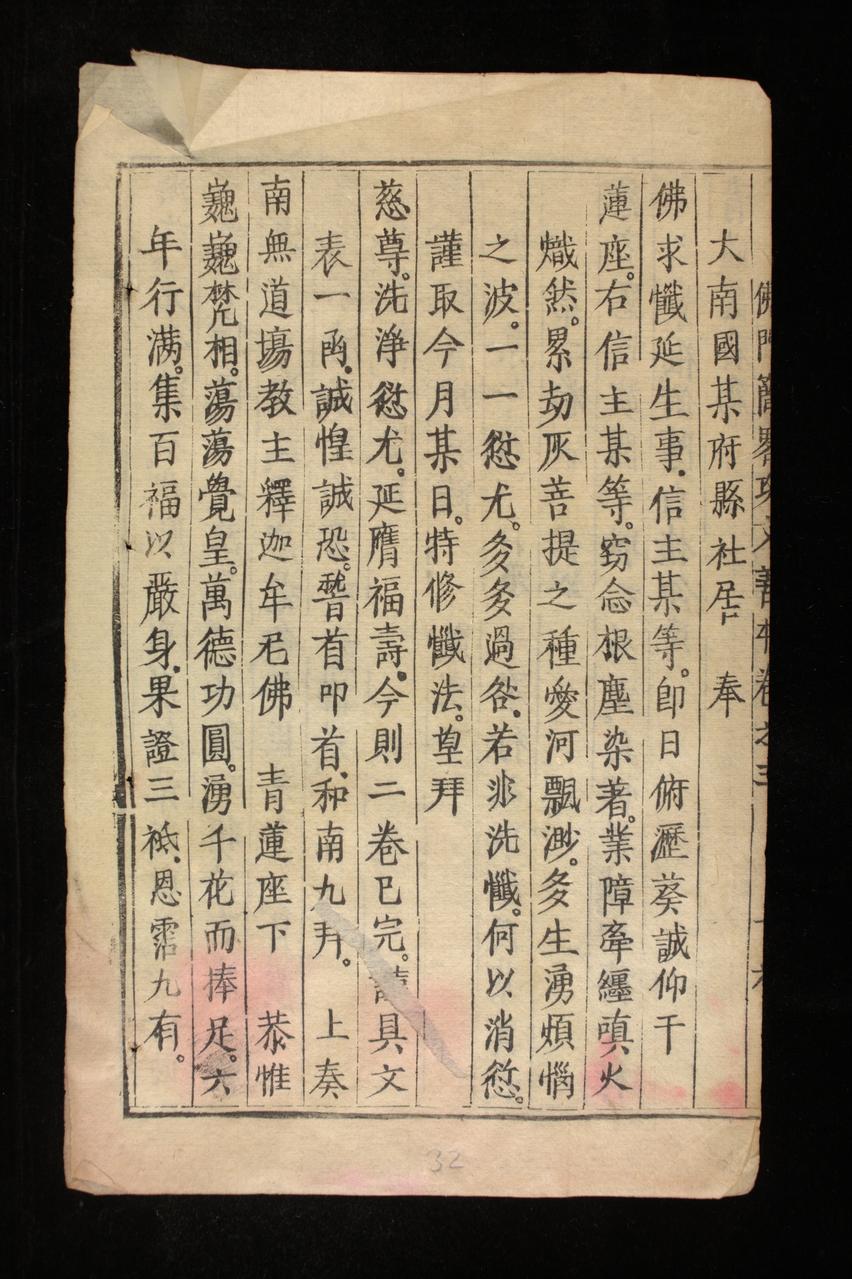 佛門簡畧功文善本卷之三
大南國某府縣社居　奉
佛求懺延生事。信主某等。即日俯瀝葵誠仰干
蓮座。右信主某等。窃念根塵染著。業障牽纏嗔火
熾然。累劫灰菩提之種愛河飄渺。多生湧煩惱
之波。一一愆尤。多多過咎。若非洗懺。何以消愆。
謹取今月某日。特修懺法。皇拜
慈尊。洗浄愆尤。延膺福壽。今則二卷已完。謹具文
表一凾。誠惶誠恐。稽首叩首。和南九拜。　上奏
南無道塲教主釋迦牟尼佛　青蓮座下　恭惟
巍巍梵相。蕩蕩覺皇。萬德功圓。湧千花而捧足。六
年行满。集百福以嚴身。果證三祇。恩霑九有。
32